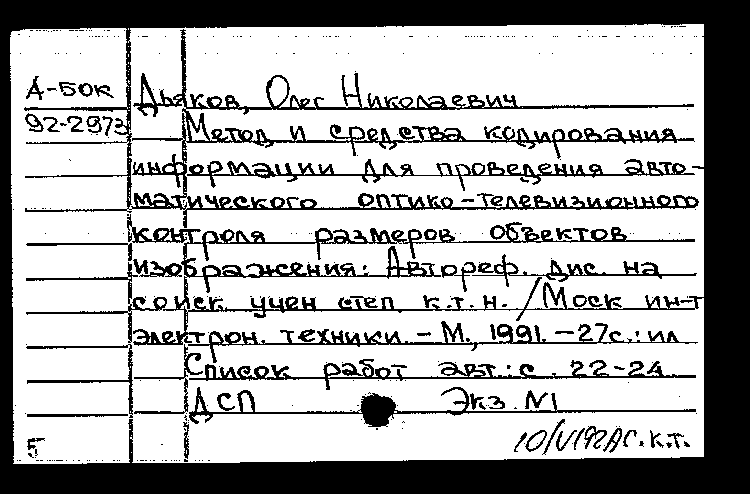 А-БОК Дьяков, Олег Николаевич
92-2973 Метод и средства кодирования
информации для проведения авто-
матического оптико-телевизионного
контроля размеров объектов
изображения: Автореф. дис. на
соиск учен степ к.т.н. / Моск ин-т
электрон. техники. - М., 1991. - 27с.: ил
Список работ авт.: с. 22-24
ДСП Экз. N1
5 10/V192 с.к.т.